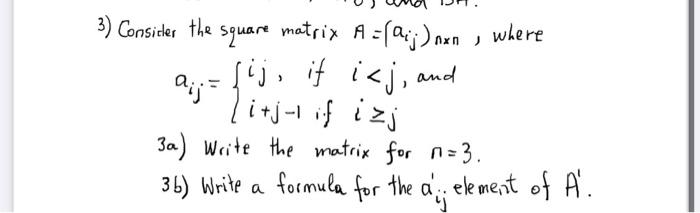 3) Consider the square matrix A = (aij)nxn, where
aij = { ij, if i < j, and
i+j-1 if i ≥ j
3a) Write the matrix for n=3.
3b) Write a formula for the a'ij element of A'.